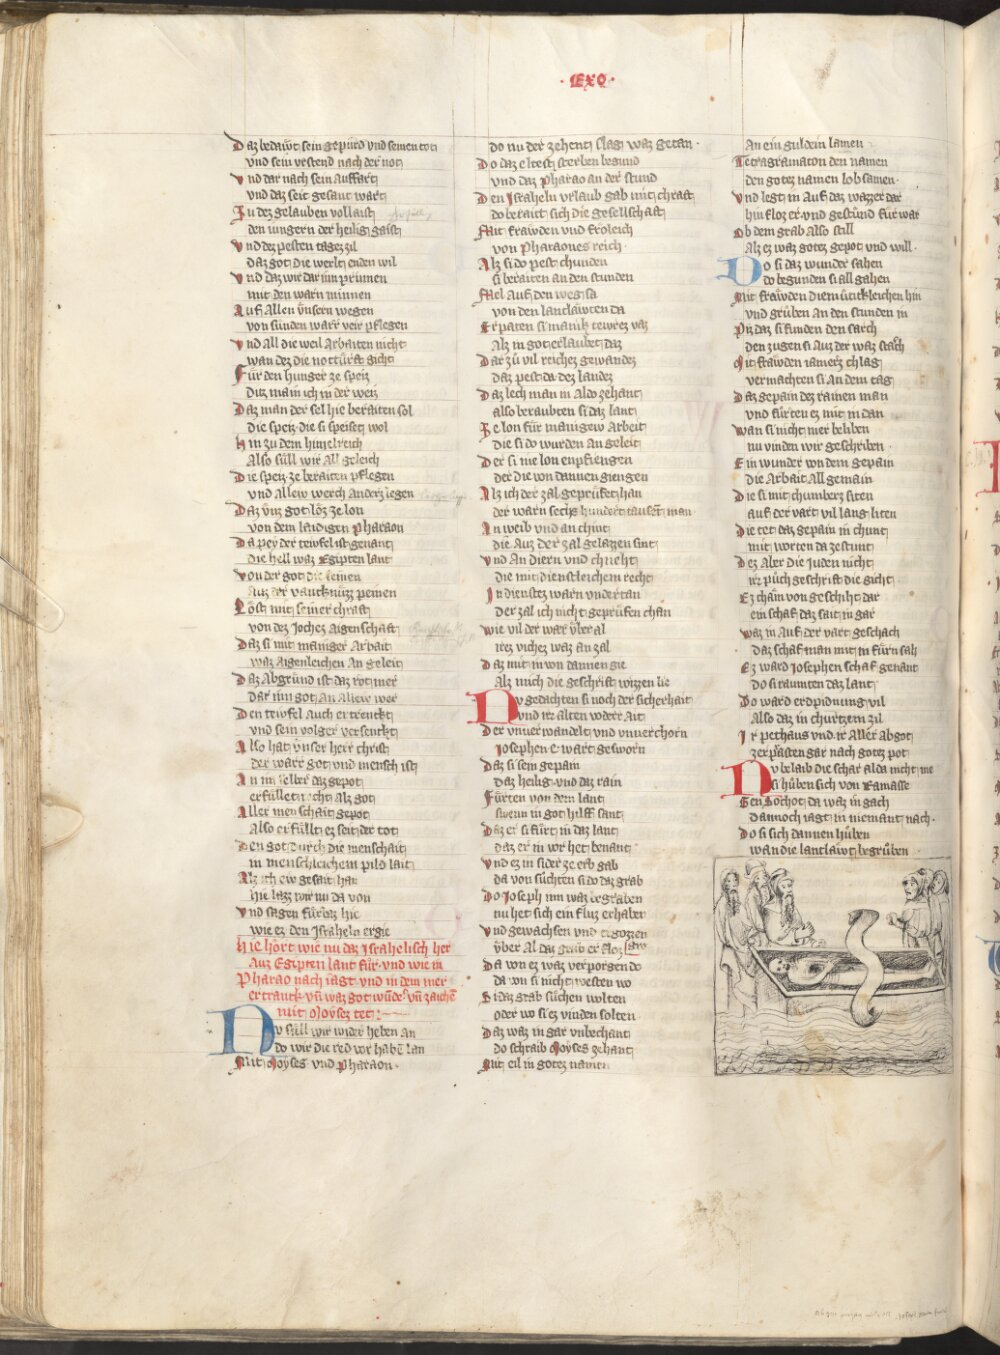 · EXO ·
Daz bedawt sein gepurd vnd seinen tot
vnd sein vrstend nach der not
vnd dar nach sein auffart
vnd daz seit gesant wart
In dez gelauben vollaist
den iungern der heilig gaist
vnd dez pesten tagez zil
daz got die werlt enden wil
vnd daz wir dar inn prinnen
mit den warn minnen
Auf allen vnsern wegen
von sunden warr veir pflegen
vnd all die weil arbaiten nicht
wan dez die notturft gicht
Für den hunger ze speiz
ditz main ich in der weiz
Daz man der sel hie beraiten sol
die speiz die si speiset wol
hin zu dem himelreich
Also sull wir all geleich
Die speiz ze beraiten pflegen
vnd allew werch anderz legen
Daz vnz got löz ze lon
von dem laidigen Pharaon
Da pey der teyfel ist genant
die hell waz Egipten lant
von der got die seinen
Auz der vanchnuzz peinen
Lost mit seiner chraft
von dez Jochez aigenschaft
Daz si mit maniger arbait
waz aigenleichen an geleit
Daz abgrund ist daz rot mer
dar inn got an allew wer
Den teyfel auch ertrenckt
vnd sein volger versenckt
Also hat vnser herr christ
der warr got vnd mensch ist
An im selber daz gepot
erfullet recht alz got
Aller menschait gepot
Also erfullt ez seit der tot
Den got durch die menschait
in menschleichem pild lait
Alz ich ew gesait han
hie lazz wir nu da von
vnd sagen fürbaz hie
wie ez den Israheln ergie
Hie hört wie nu daz Israhelisch her
Auz Egipten lant für vnd wie in
Pharao nach iagt vnd in dem mer
ertranck vn waz got wunder vn zaichen
mit Moyses tet
Nv sull wir wider heben an
do wir die red vor habe lan
Mit Moyses vnd Pharaon ·
do nu der zehent slag waz getan ·
Do daz eltest sterben begund
vnd daz Pharao an der stund
Den Israheln vrlaub gab mit chraft
do berait sich die gesellschaft
Fait frawden vnd frőleich
von Pharaones reich ·
Alz si do pest chunden
si beraiten an den stunden
Fael auf den weg sa
von den lantlawten da
Erpaten si manik tewrez vaz
Alz in got erlaubet daz
Dar zu vil reichez gewandez
daz pest da dez landez
Daz lech man in aldo zehant
also beraubten si daz lant
Ze lon für manigew arbeit
die si do wurden an geleit
Der si nie lon enpfiengen
der die von dannen giengen
Alz ich der zal geprüfet han
der warn sechs hundert tausent man
An weib vnd an chint
die auz der zal gelazen sint
vnd an diern vnd chneht
die mit dienstleichem recht
In dienstez warn vndertan
der zal ich nicht geprüfen chan
wie vil der war vber al
irez vichez waz an zal
Daz mit in von dannen gie
Alz mich die geschrift wizzen lie
Nv gedachten si noch der sicherhait
vnd irr alten vodere ait
Der vnuerwandelt vnd vnuerchorn
Josephen e wart gesworn
Daz si sein gepain
daz heilig vnd daz rain
Fürten von dem lant
swenn in got hilff sant
Daz er si fürt in daz lant
daz er in vor het benant
vnd ez in sider ze erb gab
da von suchten si do daz grab
Do Joseph inn waz begraben
nu het sich ein fluz erhaben
vnd gewachsen vnd ergozzen
vber al daz grab er floz
Da von ez waz verporgen do
da von si nicht westen wo
Si daz grab suchen wolten
oder wo si ez vinden solten
Daz waz in gar vnbechant
do schraib Moyses zehant
Mit eil in gotez namen
An ein guldein lamen
Tetragramaton den namen
den gotez namen lobsamen ·
vnd legt in auf daz wazzer dar
hin floz er vnd gestund fur war
Ob dem grab also still
Alz ez waz gotez gepot vnd will ·
Do si daz wunder sahen
do begunden si all gahen
Mit frawden diemutickleichen hin
vnd gruben an den stunden in
Piz daz si funden den sarch
den zugen si auz der waz starch
Mit frawden iamerz chlag
vermachten si an dem tag
Daz gepain dez rainen man
vnd fürten ez mit in dan
wan si nicht mer beliben
nu vinden wir geschriben ·
Ein wunder von dem gepain
die arbait all gemain
Die si mit chumberz siten
auf der vart vil lang liten
Die tet daz gepain in chunt
mit worten da zestunt
Dez aber die Juden nicht
irr puch geschrift die gicht
Ez cham von geschiht dar
ein schaf daz sait in gar
waz in auf der vart geschach
daz schaf man mit in fürn sah
Ez ward Josephen schaf genant
do si raumten daz lant
Do ward erdpidnung vil
Also daz in churtzem zil
Ir pethaus vnd ir aller abgot
zerprasten gar nach gotez pot
Nv belaib die schar alda nicht me
si huben sich von Ramasse
Gen Sochot da waz in gach
dannoch iagt in niemant nach ·
Do si sich dannen huben
wan die lantlawt begruben